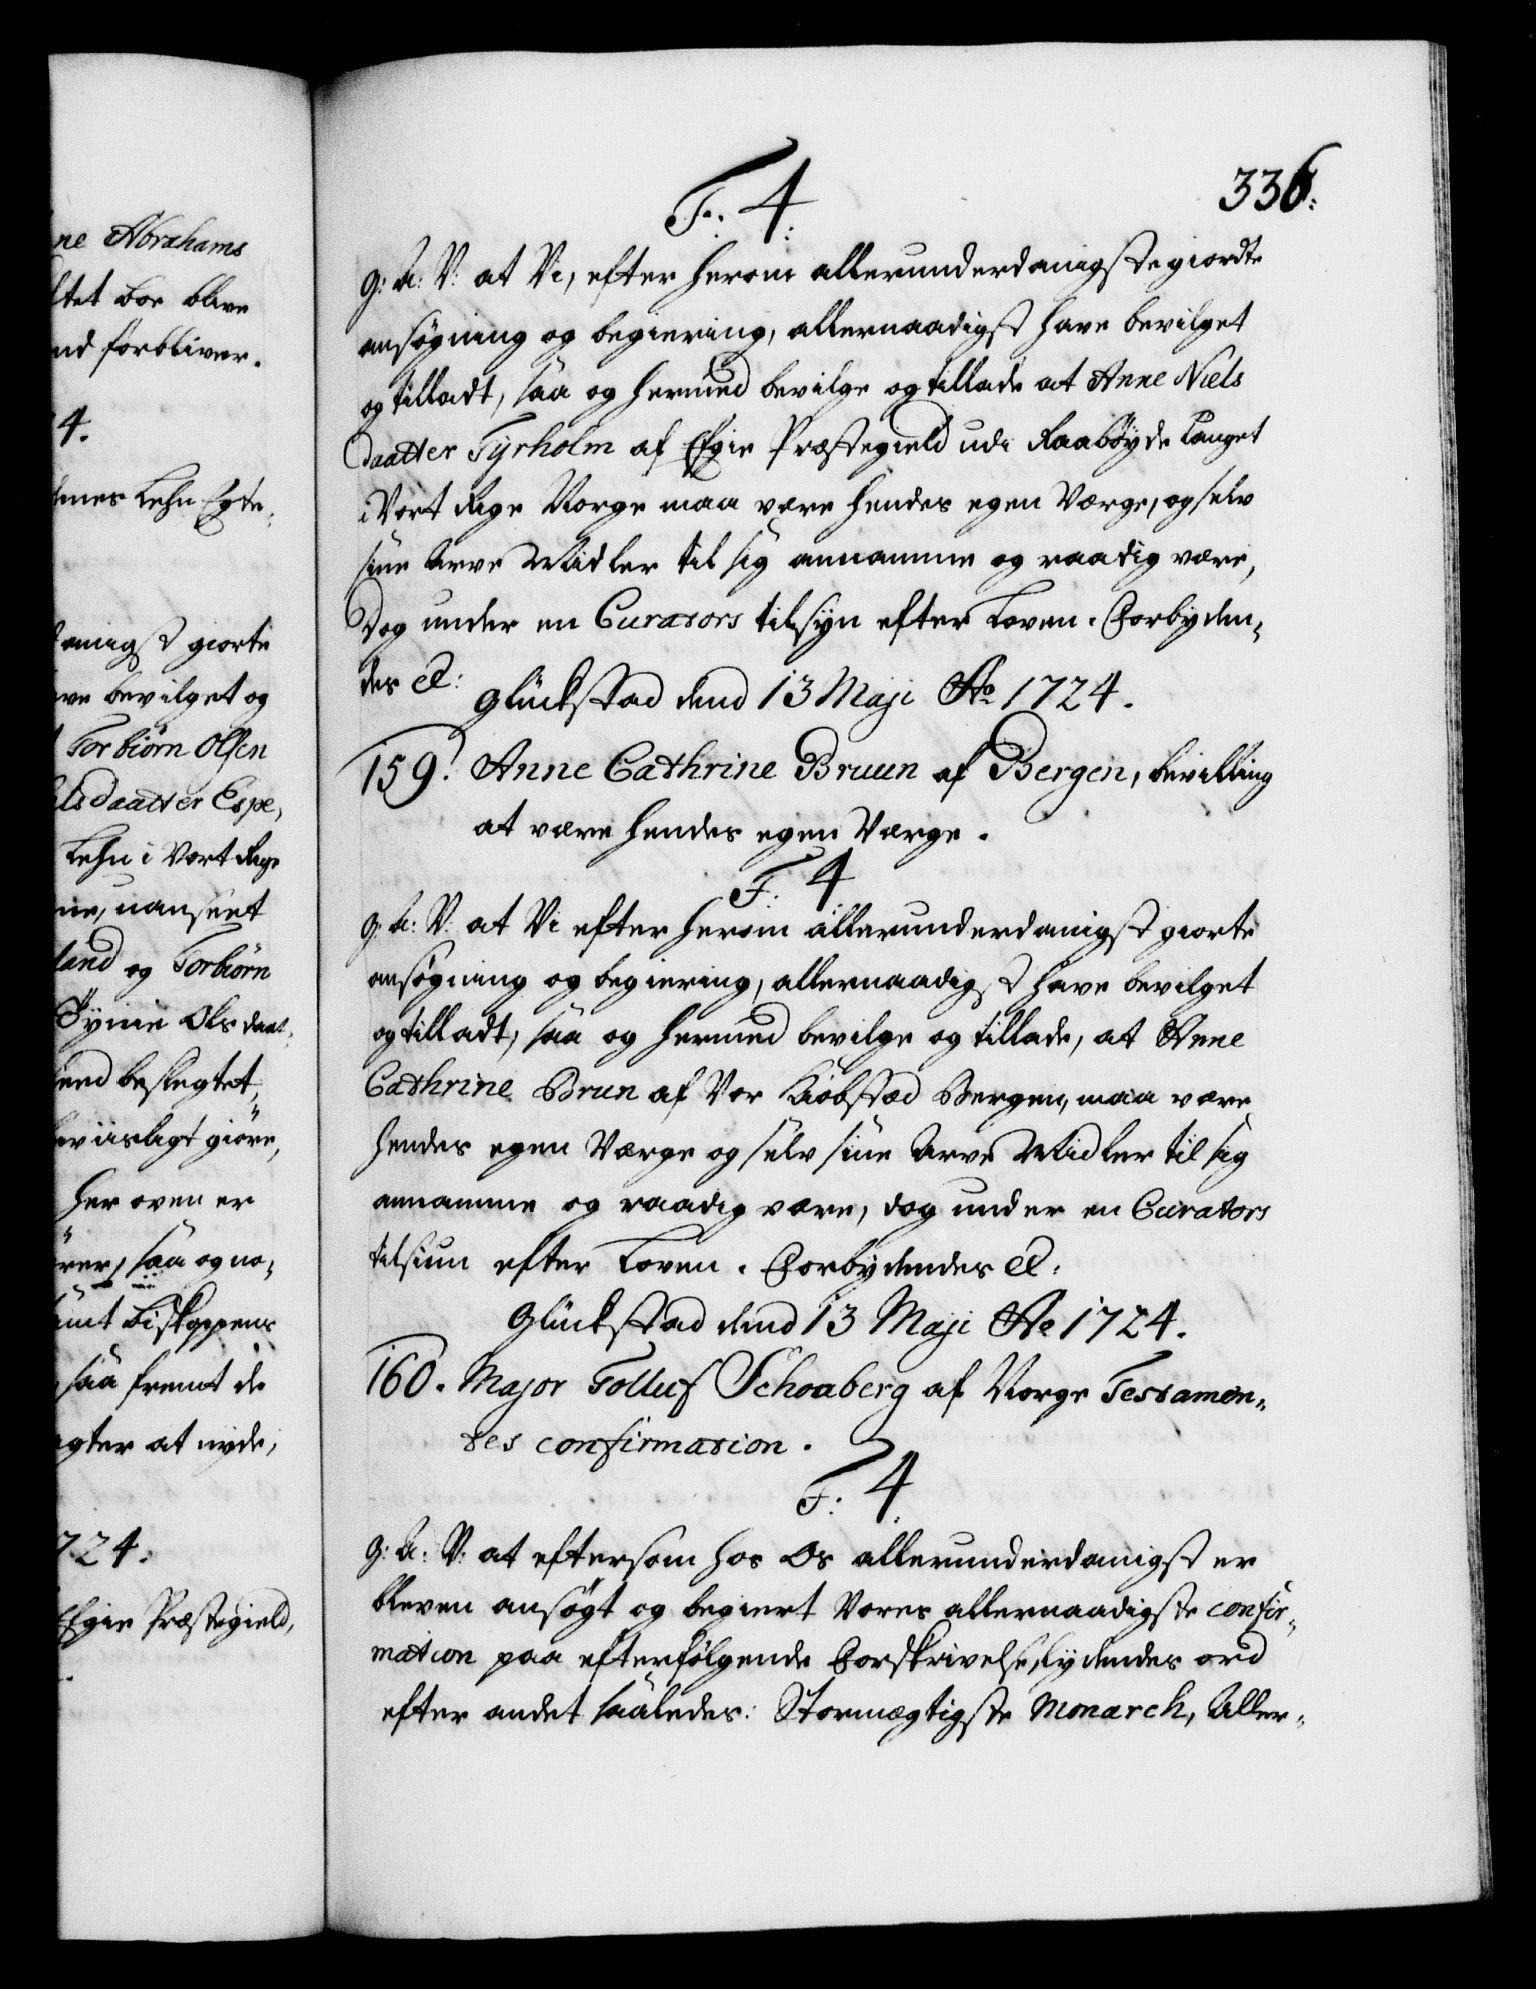 ne Abrahams
ltet bor blive
nd forbliver.
4.
enes Lehn Egte-
danigst giorte
ve bevilget og
Torbiörn Olsen
lsdaatter Espe,
Lehn i Vort Rige
me, uanseet
land og Torbiörn
Sÿnie Ols daat-
eed beslegtet,
eviisligt giöre,
her oven er
örer, saa og no-
samt Biskoppens
saa fremt de
agter at nyde,
724.
Efgie Præstegield,
336.
F. 4.
G: A: V: at Vi, efter herom allerunderdanigste giordte
ansøgning og begiering, allernaadigst have bevilget
og tilladt, saa og hermed bevilge og tillade at Anne Niels
daatter Tyrholm af Efgie Præstegield udi Raabÿyde Lauget
i Vort Rige Norge maa være hendes egen Værge, og selv
sine Arve Midler til sig annamme og raadig være,
Dog under en Curators tilsyn efter Loven. Forbyden-
des &:
Glückstad dend 13 Maji Ao 1724.
159. Anne Cathrine Bruun af Bergen, bevilling
at være hendes egen Værge.
F. 4.
G: A: V: at Vi efter herom allerunderdanigst giorte
ansøgning og begiering, allernaadigst have bevilget
og tilladt, saa og hermed bevilge og tillade, at Anne
Cathrine Brun af Vor Kiøbstæd Bergen, maa være
hendes egen Værge og selv sine Arve Midler til sig
annamme og raadig være, dog under en Curators
tilsiun efter Loven. Forbydendes &:
Glückstad dend 13 Maji Ao 1724.
160. Major Tolluf Schoaberg af Norge Testamen-
tes confirmation.
F. 4.
G: A: V: at eftersom hos Os allerunderdanigst er
bleven ansøgt og begiert Vores allernaadigste confir-
mation paa efterfølgende Forskrivelse, lydendes ord
efter andet saaledes: Stormægtigste Monarch, Aller-